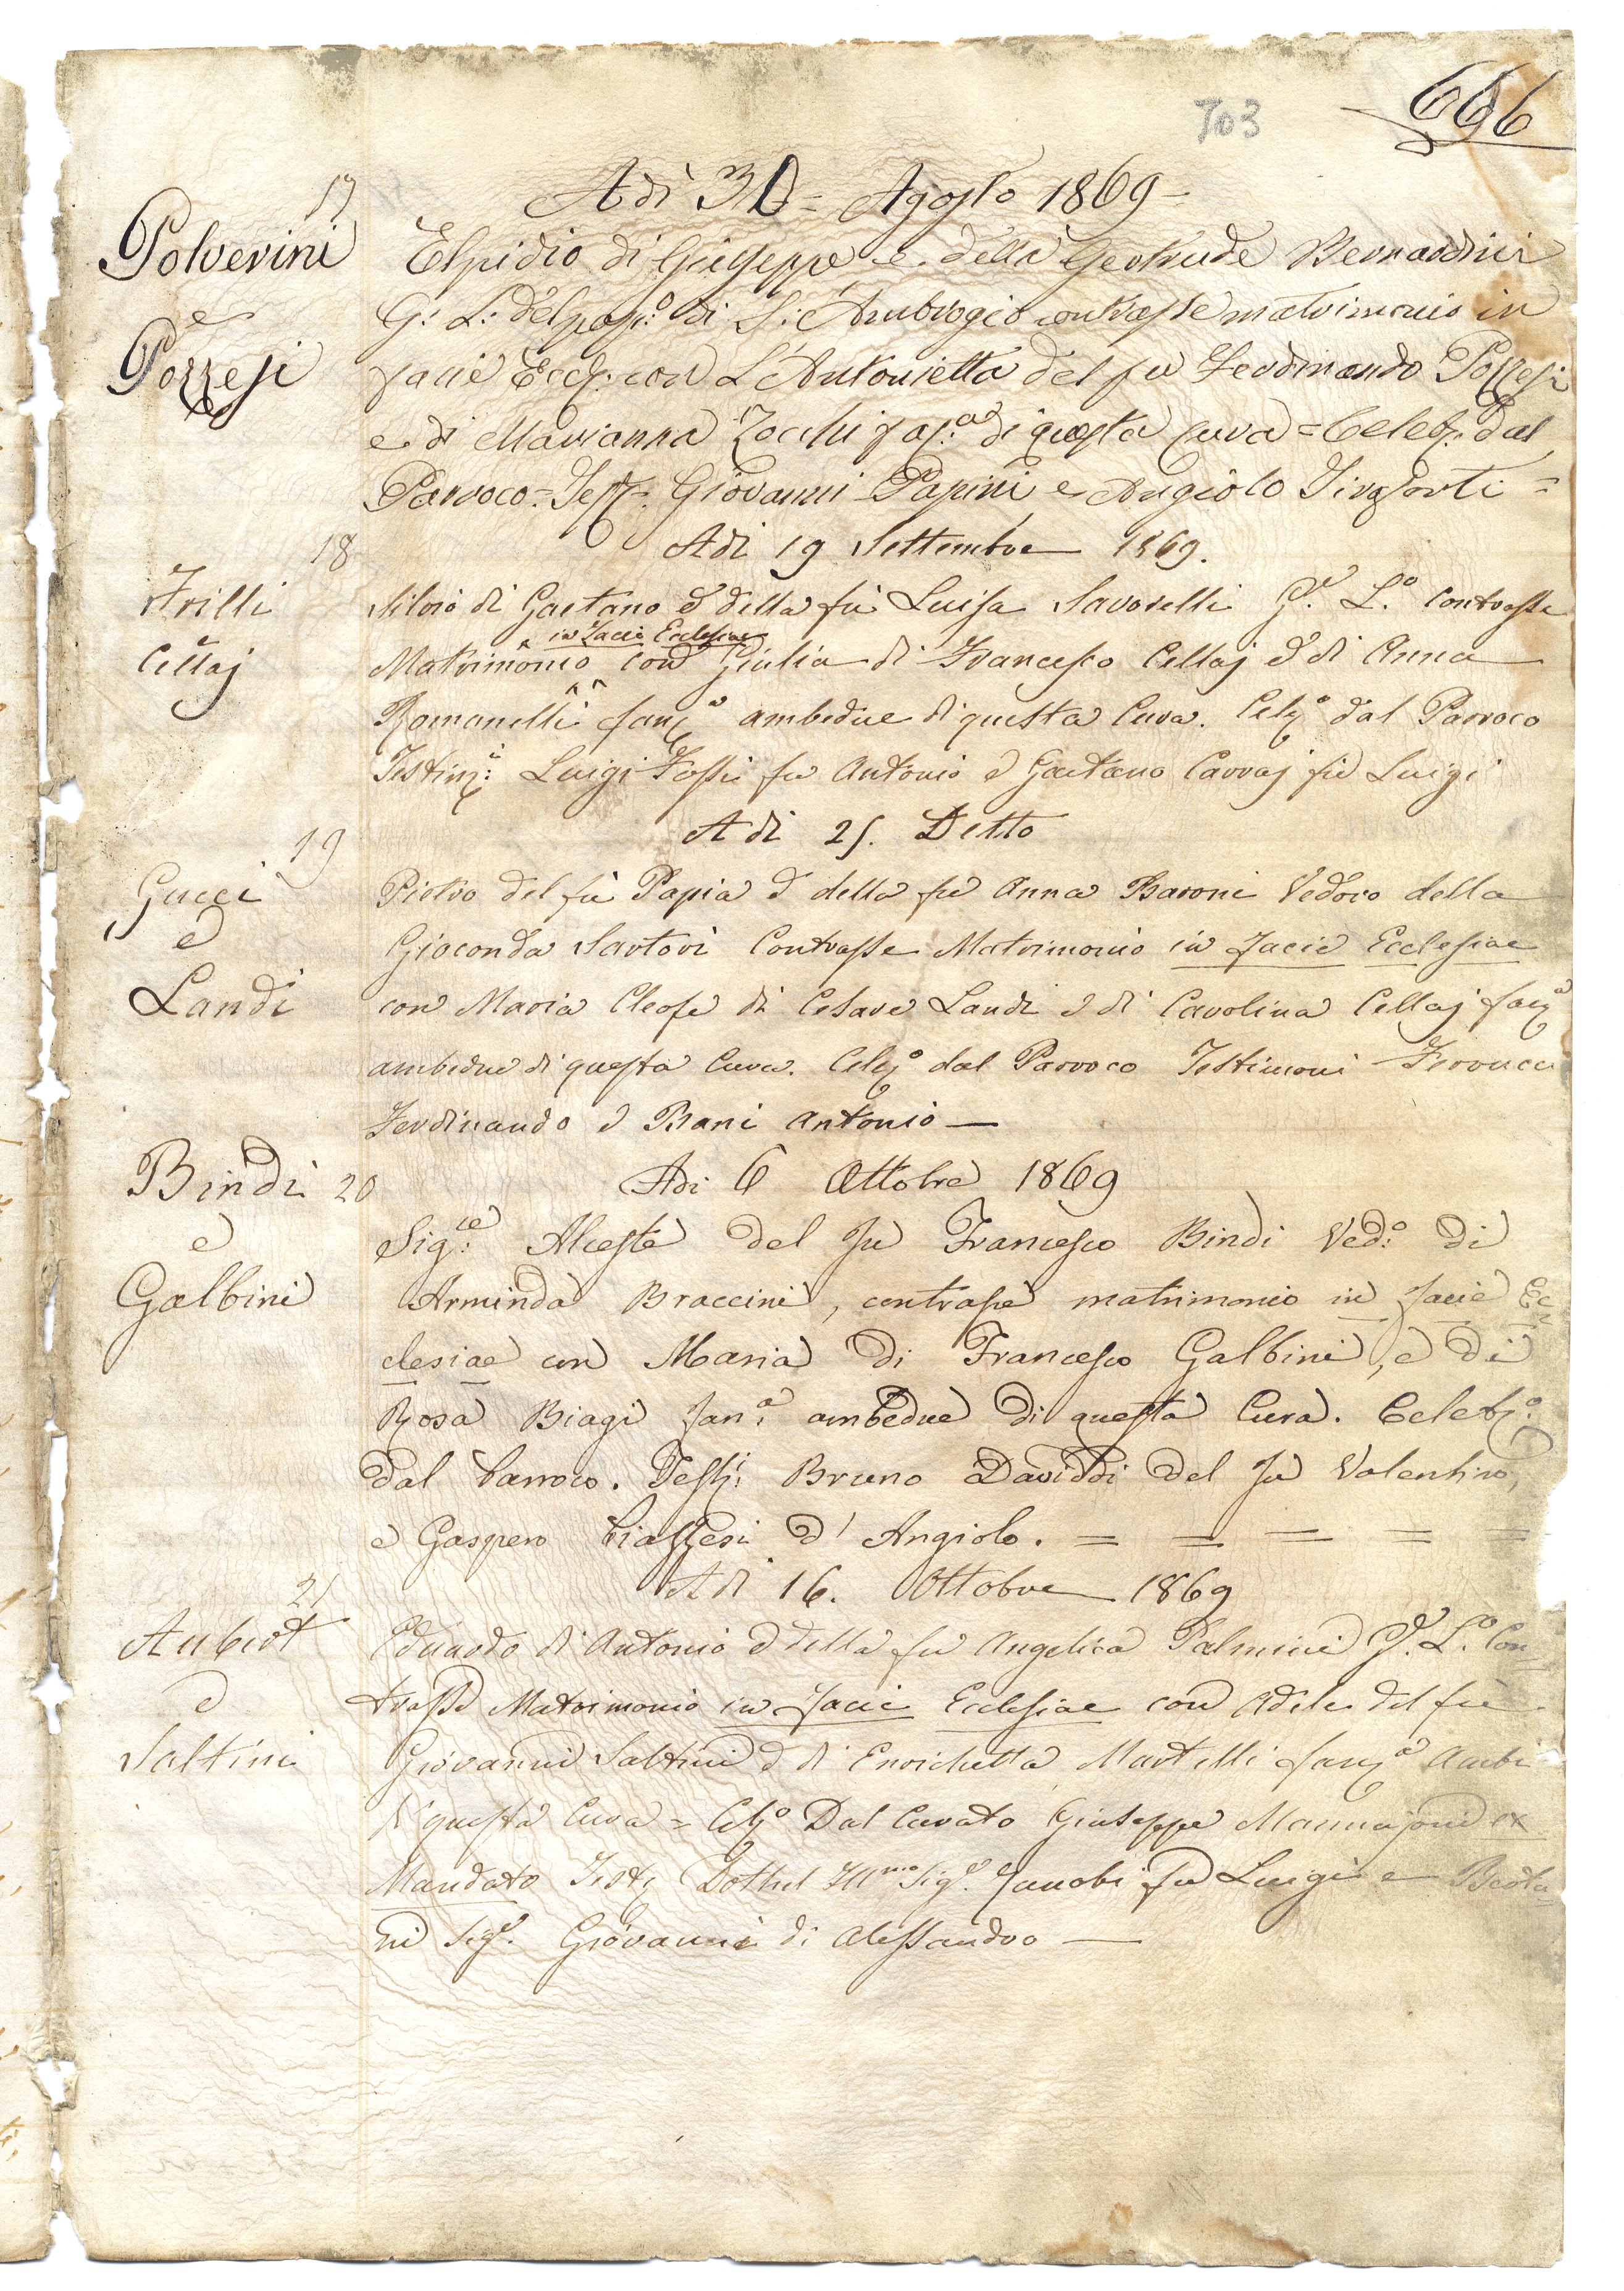 703
666
17
Adì 30 = Agosto 1869 =
Polverini
e
Pozzesi
Elpidio di Giuseppe e della Geltrude Bernardini
G: L: del pop:o di S: Ambrogio contrasse matrimonio in
facie Eccl: con L'Antonietta del fu Ferdinando Pozzesi
e di Marianna Zocchi di questa Cura = Celeb: dal
Parroco = Test: Giovanni Papini e Angiolo
18
Adì 19 Settembre 1869.
Frilli
e
Cellaj
Silvio di Gaetano e della fu Luisa Savorelli G.e L.o Contrasse
in Facie Ecclesiae
Matrimonio con Giulia di Francesco Cellaj e di Anna
Romanelli fanc.a ambedue di questa Cura. Cel.o dal Parroco
Testim:i Luigi Fossi fu Antonio e Gaetano Carraj fu Luigi
19
Adì 25. Detto
Gucci
e
Landi
Pietro del fu Papia e della fu Anna Baroni Vedovo della
Gioconda Sartori Contrasse Matrimonio in Facie Ecclesiae
con Maria Cleofe di Cesare Landi e di Carolina Cellaj fanc.a
ambedue di questa Cura. Cel.o dal Parroco Testimoni Ferrucci
Ferdinando e Bani Antonio —
20
Adi 6 Ottobre 1869
Bindi
e
Galbini
Sig:re Alceste del fu Francesco Bindi Ved:o di
Arminda Braccini, contrasse matrimonio in facie Ec=
clesiae con Maria di Francesco Galbini, e di
Rosa Biagi fan:a ambedue di questa Cura. Celeb:o
dal Parroco. Test:i Bruno Daviddi del fu Valentino,
e Gaspero Piazzesi d'Angiolo. = = = = =
21
Adì 16. Ottobre 1869
Aubert
e
Saltini
Eduardo di Antonio e della fu Angelica Palmini G.e L.o Con=
trasse Matrimonio in facie Ecclesiae con Adele del fu
Giovanni Saltini e di Enrichetta Martelli fanc.a Ambi
di questa Cura = Cel.o Dal Curato Giuseppe Mannajoni ex
Mandato Test. Ill.mo Sig.e fu Luigi e
ni Sig.e Giovanni di Alessandro —